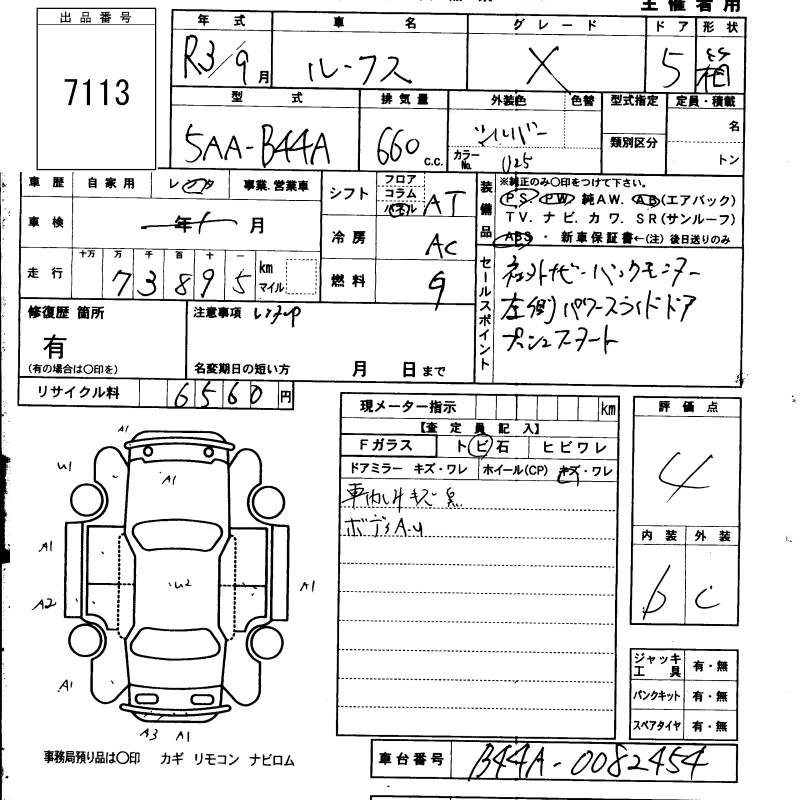 主催者用
出品番号
7113
年式 車名 グレード ドア 形状
R3/9月 ルークス X 5 箱
型式 排気量 外装色 色替 型式指定 定員・積載
5AA-B44A 660 c.c. シルバー カラーNo. 類別区分 名
トン
車歴 自家用 レンタ 事業.営業車
シフト フロア コラム パネル AT
装備品 ※純正のみ○印をつけて下さい。
PS PW 純AW. AB(エアバック)
TV. ナビ. カワ. SR(サンルーフ)
ABS ・ 新車保証書←(注) 後日送りのみ
車検 年 月
冷房 AC
走行 十万 万 千 百 十 一
73895 km マイル
燃料 G
セールスポイント
左側パワースライドドア
プッシュスタート
修復歴 箇所
有
(有の場合は○印を)
注意事項 レンタUP
名変期日の短い方 月 日まで
リサイクル料 6560 円
現メーター指示 km
【査定員記入】
Fガラス トビ石 ヒビワレ
ドアミラー キズ・ワレ ホイール(CP) キズ・ワレ
ボディA.U
評価点
4
内装 外装
b c
A1
U1 A1
A1
U2 A1
A2
A1
A3 A1
ジャッキ工具 有・無
パンクキット 有・無
スペアタイヤ 有・無
事務局預り品は○印 カギ リモコン ナビロム
車台番号 B44A-0082454